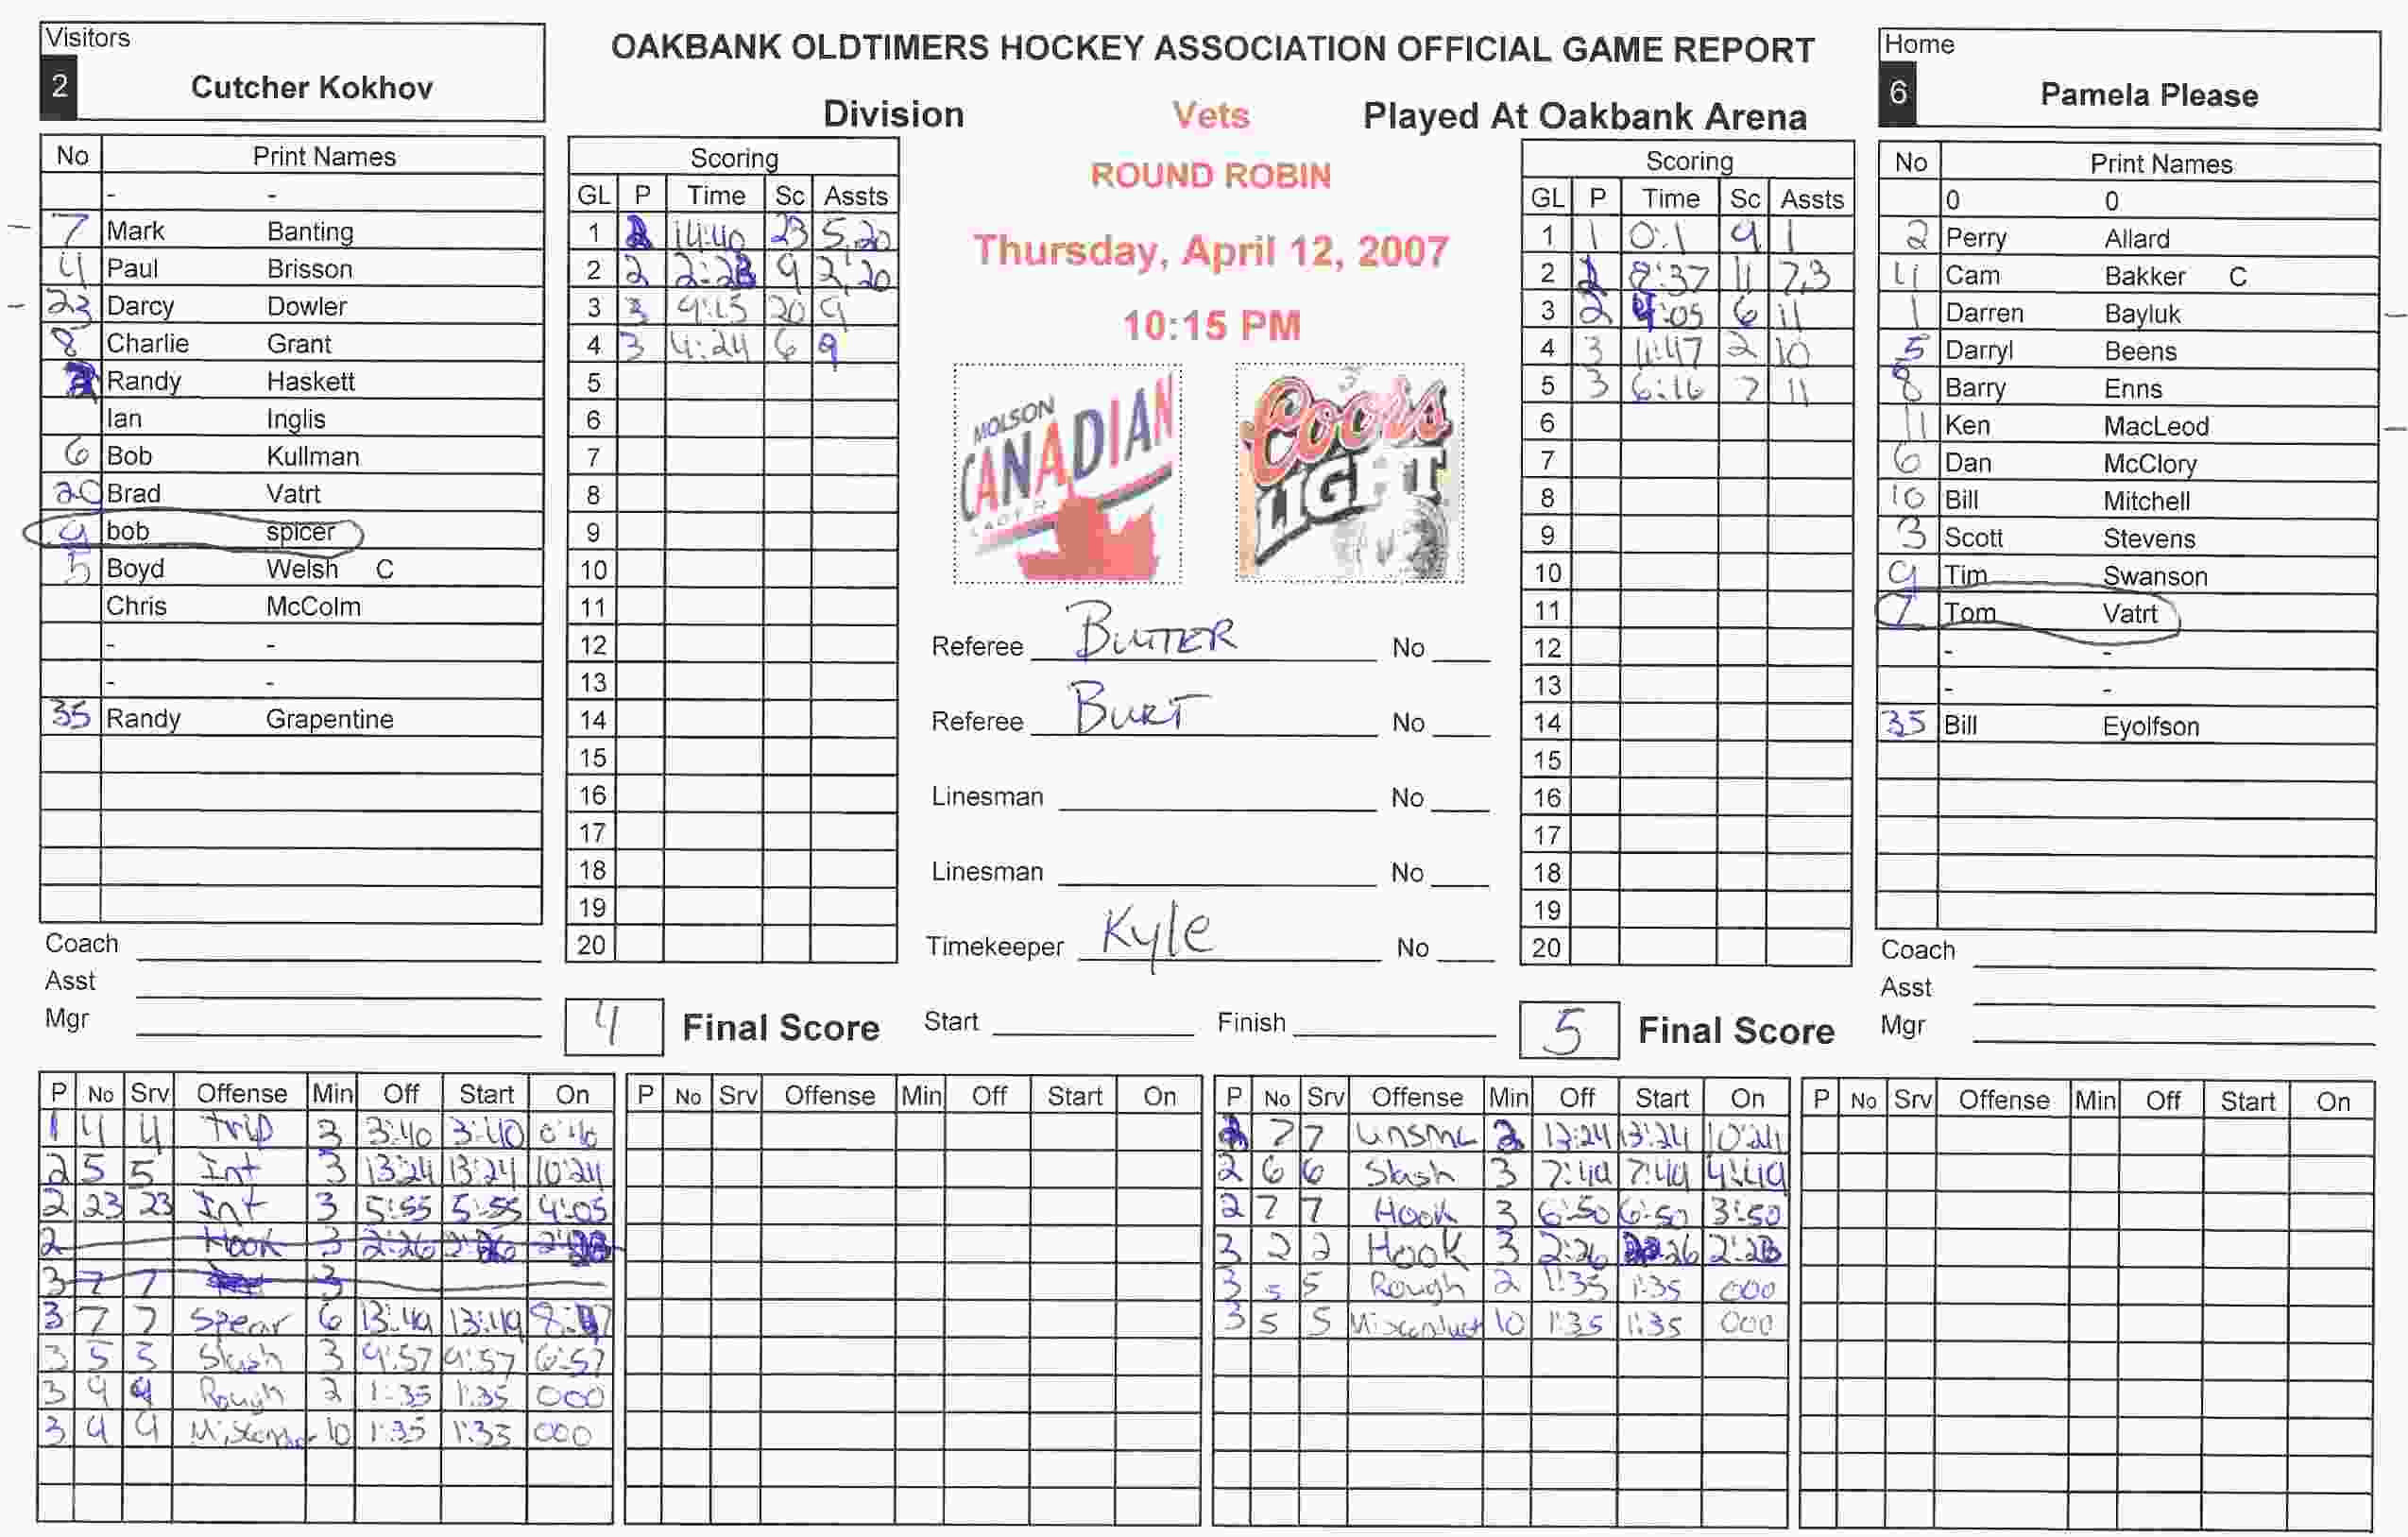 Visitors
2 Cutcher Kokhov
OAKBANK OLDTIMERS HOCKEY ASSOCIATION OFFICIAL GAME REPORT
Division Vets Played At Oakbank Arena
ROUND ROBIN
Thursday, April 12, 2007
10:15 PM
Home
6 Pamela Please
No Print Names
- -
7 Mark Banting
4 Paul Brisson
23 Darcy Dowler
8 Charlie Grant
Randy Haskett
Ian Inglis
6 Bob Kullman
20 Brad Vatrt
9 bob spicer
5 Boyd Welsh C
Chris McColm
- -
- -
35 Randy Grapentine
Coach
Asst
Mgr
Scoring
GL P Time Sc Assts
1 2 14:40 23 5,20
2 2 2:23 9 2,20
3 3 9:15 20 9
4 3 4:24 6 9
5
6
7
8
9
10
11
12
13
14
15
16
17
18
19
20
4 Final Score
MOLSON
CANADIAN
LAGER
Coors
LIGHT
Referee BUTTER No
Referee BURT No
Linesman No
Linesman No
Timekeeper Kyle No
Start Finish
Scoring
GL P Time Sc Assts
1 1 0:1 9 1
2 8:37 11 7,3
3 2 4:05 6 11
4 3 11:47 2 10
5 3 6:16 7 11
6
7
8
9
10
11
12
13
14
15
16
17
18
19
20
5 Final Score
No Print Names
0 0
2 Perry Allard
4 Cam Bakker C
1 Darren Bayluk
5 Darryl Beens
8 Barry Enns
11 Ken MacLeod
6 Dan McClory
10 Bill Mitchell
3 Scott Stevens
9 Tim Swanson
7 Tom Vatrt
- -
- -
35 Bill Eyolfson
Coach
Asst
Mgr
P No Srv Offense Min Off Start On
1 4 4 Trip 3 3:40 3:40 0:40
2 5 5 Int 3 13:24 13:24 10:24
2 23 23 Int 3 5:55 5:55 4:05
2 Hook 3 2:26
3 7 7 3
3 7 7 Spear 6 13:49 13:49
3 5 5 Slash 3 9:57 9:57 6:57
3 9 9 Rough 2 1:35 1:35 000
3 9 9 10 1:35 1:35 000
P No Srv Offense Min Off Start On
P No Srv Offense Min Off Start On
7 7 unsmc 2 13:24 13:24 10:24
2 6 6 Slash 3 7:49 7:49 4:49
2 7 7 Hook 3 6:50 6:50 3:50
3 2 2 Hook 3 2:26 26 2:23
3 5 5 Rough 2 1:35 1:35 000
3 5 5 Misconduct 10 1:35 1:35 000
P No Srv Offense Min Off Start On